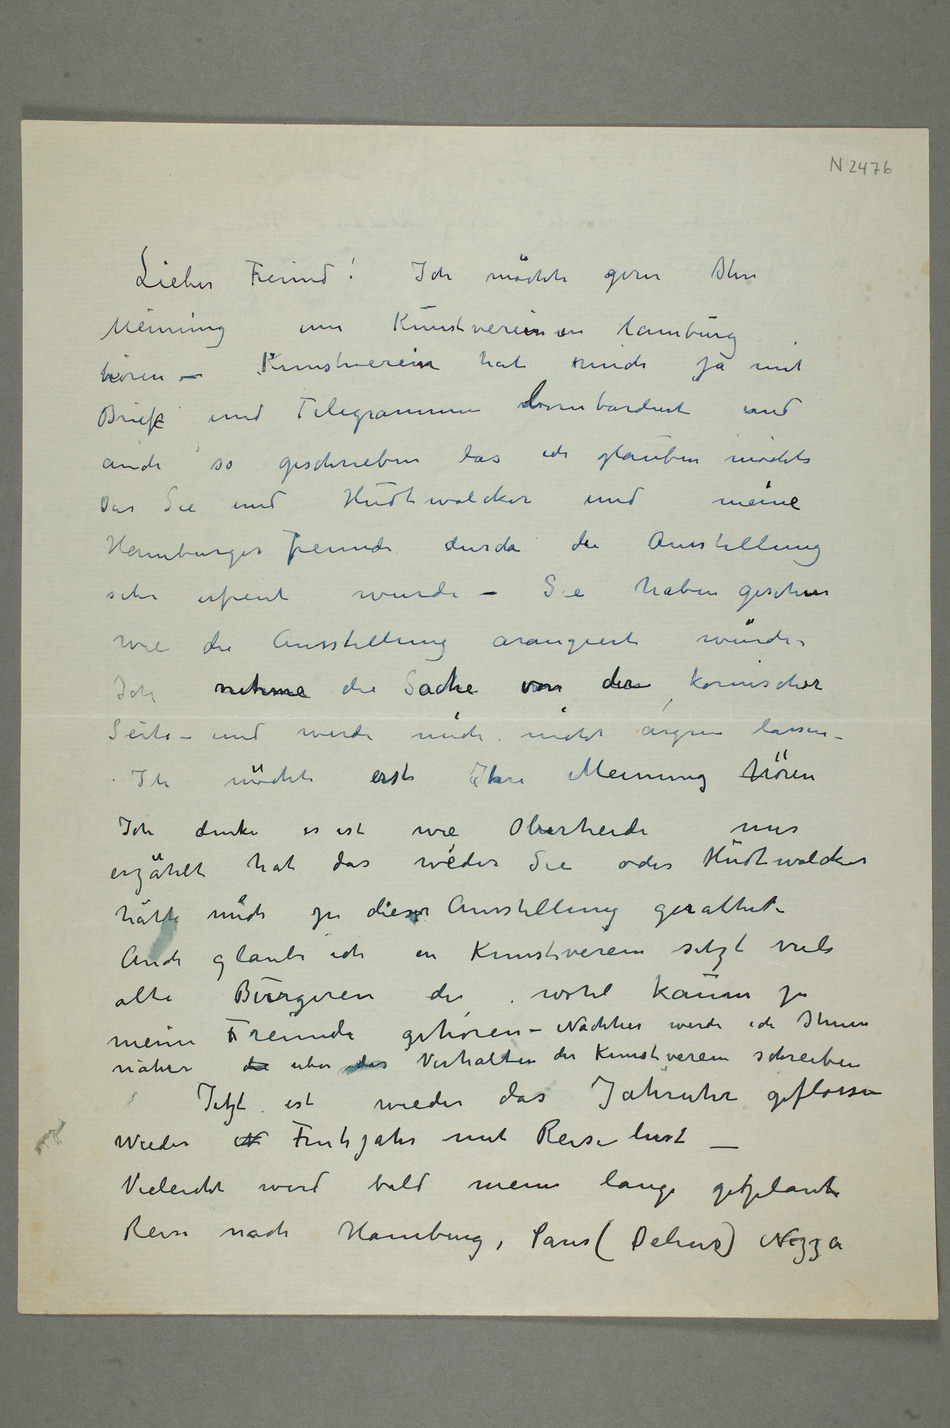 N 2476
Lieber Freind! Ich möchte gern Ihre
Meinung um Kunstverein in Hamburg
hören – Kunstverein hat mich ja mit
Briefe und Telegrammen bombardiert und
auch so geschrieben das ich glauben möchte
Das Sie und Hudtwalcker und meine
Hamburger Freunde durch die Ausstellung
sehr erfreut wurde – Sie haben gesehen
wie die Ausstellung arangiert wurde.
Ich nehme die Sache von der komischer
Seite – und werde mich nicht ärgern lassen –
Ich möchte erst Ihre Meinung hören
Ich denke es ist wie Oberheide mir
erzählt hat das weder Sie oder Hudtwalcker
hätte mich zu dieser Ausstellung gerathet
Auch glaube ich en Kunstverein sitzt viele
alte Bürgeren die wohl kaum zu
meine Freunde gehören – Nachher werde ich Ihnen
näher die über das Verhalten der Kunstverein schreiben
Jetzt ist wieder das Jahruhr geflossen
Wieder ist Fruhjahr mit Reiselust –
Vieleicht wird bald meine lange geplante
Reise nach Hamburg, Paris (Delius) Nizza